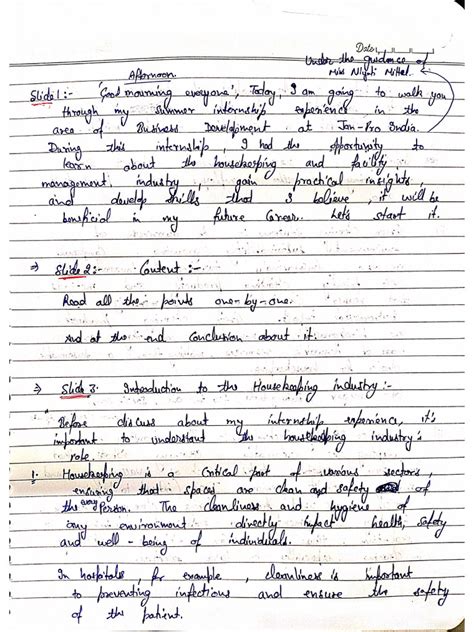 Date
Under the guidance of
Afternoon
Miss Niyati Mittal.
Slide 1:- 'Good mourning everyone', Today, I am going to walk you
through my summer internship experience in the
area of Business Development at Jan-Pro India.
During this internship, I had the opportunity to
learn about the housekeeping and facility
management industry, gain practical insights,
and develop skills that I believe, it will be
beneficial in my future Career. Let's start it.
⇒ Slide 2:- Content :-
Read all the points one-by-one.
And at the end Conclusion about it.
⇒ Slide 3: Introduction to the Housekeeping industry:-
Before discuss about my internship experience, it's
important to understand the housekeeping industry's
role.
1. Housekeeping is a Critical part of various sectors,
ensuring that spaces are clean and safety of
the every Person. The cleanliness and hygiene of
any environment directly impact health, safety
and well-being of individuals.
In hospitals, for example, cleanliness is important
to preventing infections and ensure the safety
of the patient.